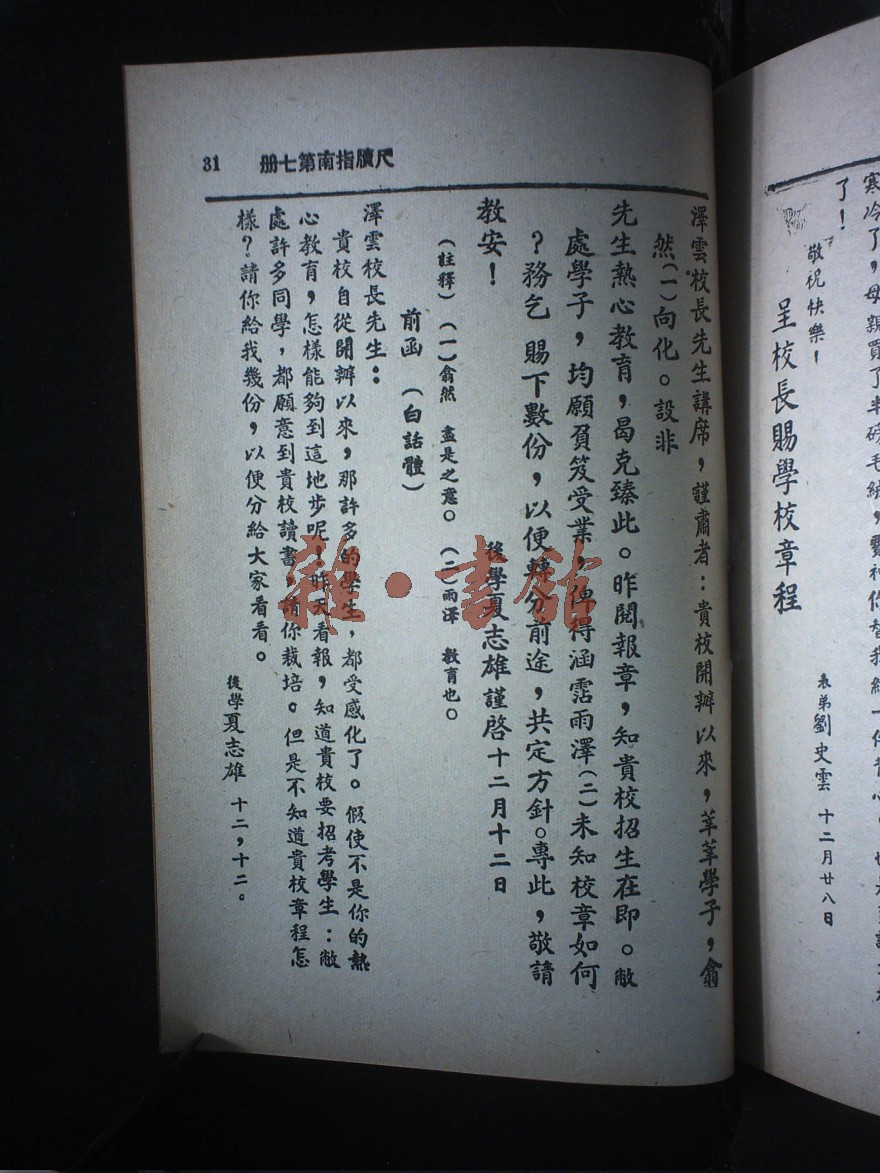 寒冷了，母親買了半磅毛絨，費神你替我結一件背心，
了！
敬祝快樂！
表弟劉史雲　十二月廿八日
呈校長賜學校章程
31　尺牘指南第七册
澤雲校長先生講席，謹肅者：貴校開辦以來，莘莘學子，翕
然(一)向化。設非
先生熱心教育，曷克臻此。昨閱報章，知貴校招生在即。敝
處學子，均願負笈受業，俾得涵霑雨澤(二)未知校章如何
？務乞　賜下數份，以便轉分前途，共定方針。專此，敬請
教安！　後學夏志雄謹啓十二月十二日
(註釋)　(一)翕然　盡是之意。　(二)雨澤　教育也。
前函　(白話體)
澤雲校長先生：
貴校自從開辦以來，那許多的學生，都受感化了。假使不是你的熱
心教育，怎樣能夠到這地步呢！昨天看報，知道貴校要招考學生：敝
處許多同學，都願意到貴校讀書，請你栽培。但是不知道貴校章程怎
樣？請你給我幾份，以便分給大家看看。
後學夏志雄　十二，十二。
雜·書館